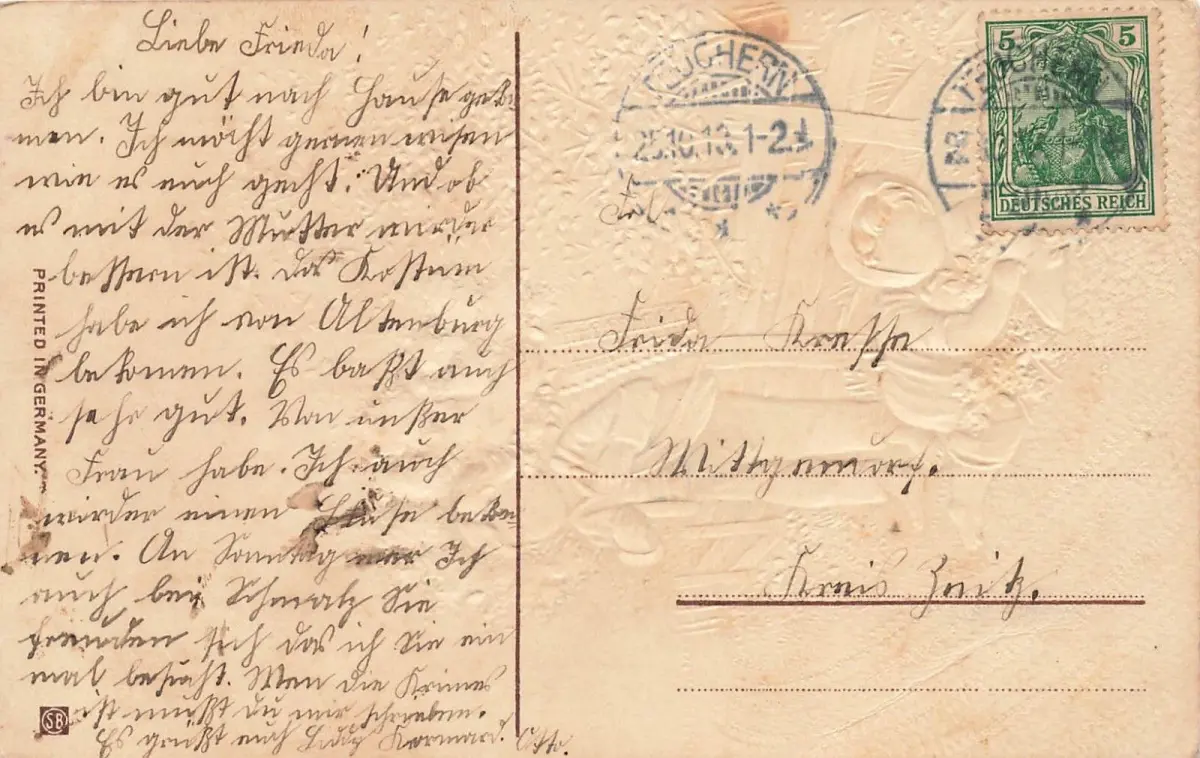 Liebe Frieda!
Ich bin gut nach Hause geko-
men. Ich möcht gernen wisen
wie es euch gecht. Und ob
es mit der Mutter wirder
bessern ist. das Kostüm
habe ich von Altenburg
bekomen. Es baßt auch
sehe gut. Von unßer
Frau habe. Ich auch
wirder einen Bluse beko-
nen. An Sonntag war Ich
auch bei Schmalz Sie
freuden sich das ich Sie ein
mal besucht. Wen die Krimes
ist mußt du mir schreiben.
Es grüßt euch
Otto.
PRINTED IN GERMANY
SB
TEUCHERN
25.10.13. 1-2
TEUCHERN
5 5
DEUTSCHES REICH
Frl.
Frida Kresse
Mittgendorf.
Kreis Zeitz.